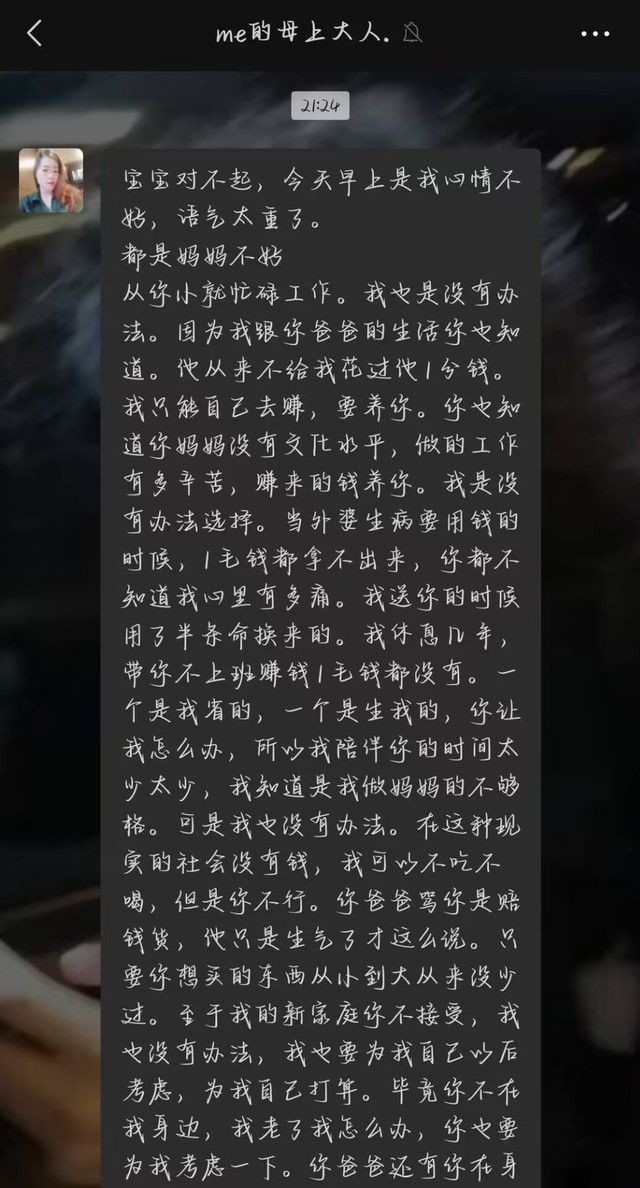 me的母上大人.
21:24
宝宝对不起，今天早上是我心情不
好，语气太重了。
都是妈妈不好
从你小就忙碌工作。我也是没有办
法。因为我跟你爸爸的生活你也知
道。他从来不给我花过他1分钱。
我只能自己去赚，要养你。你也知
道你妈妈没有文化水平，做的工作
有多辛苦，赚来的钱养你。我是没
有办法选择。当外婆生病要用钱的
时候，1毛钱都拿不出来，你都不
知道我心里有多痛。我送你的时候
用了半条命换来的。我休息几年，
带你不上班赚钱1毛钱都没有。一
个是我省的，一个是生我的，你让
我怎么办，所以我陪伴你的时间太
少太少，我知道是我做妈妈的不够
格。可是我也没有办法。在这种现
实的社会没有钱，我可以不吃不
喝，但是你不行。你爸爸骂你是赔
钱货，他只是生气了才这么说。只
要你想买的东西从小到大从来没少
过。至于我的新家庭你不接受，我
也没有办法，我也要为我自己以后
考虑，为我自己打算。毕竟你不在
我身边，我老了我怎么办，你也要
为我考虑一下。你爸爸还有你在身